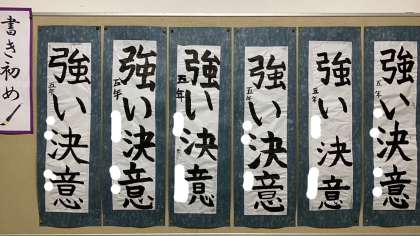 書き初め
強い決意
五年
強い決意
五年
強い決意
五年
強い決意
五年
強い決意
五年
強い決意
五年